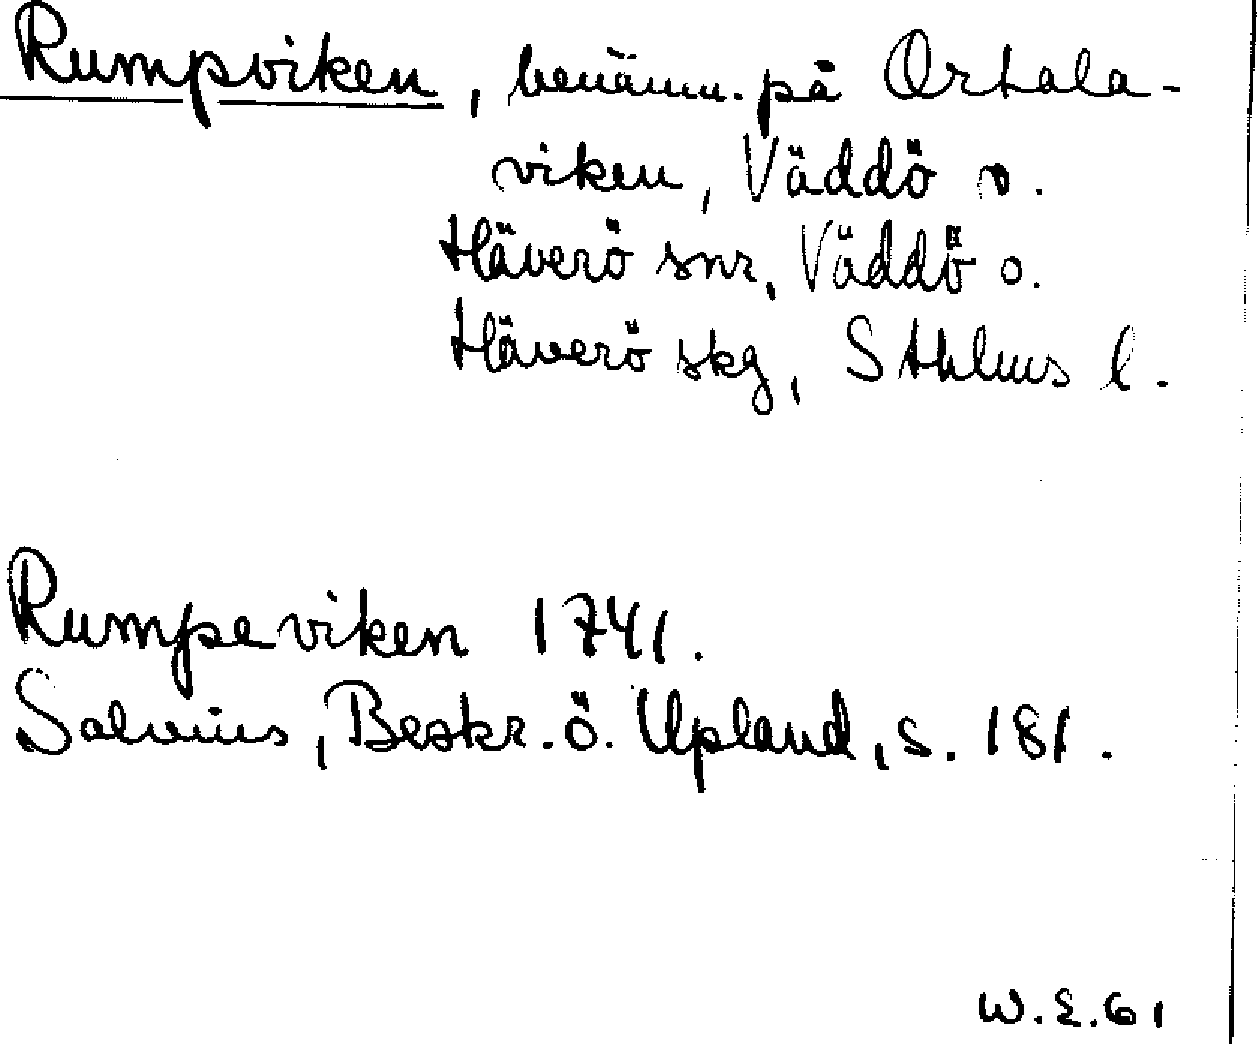 Rumpviken, benämn. på Ortala-
viken, Väddö o.
Häverö snr, Väddö o.
Häverö skg, Sthlms l.
Rumpeviken 1741.
Salvius, Beskr. ö. Upland, s. 181.
W.E.61